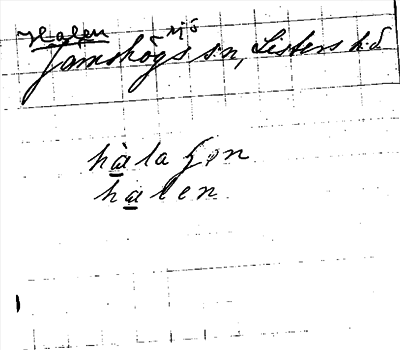 Halen
-sjö
Jämshögs sn, Listers h:d
hàlagọn
halen